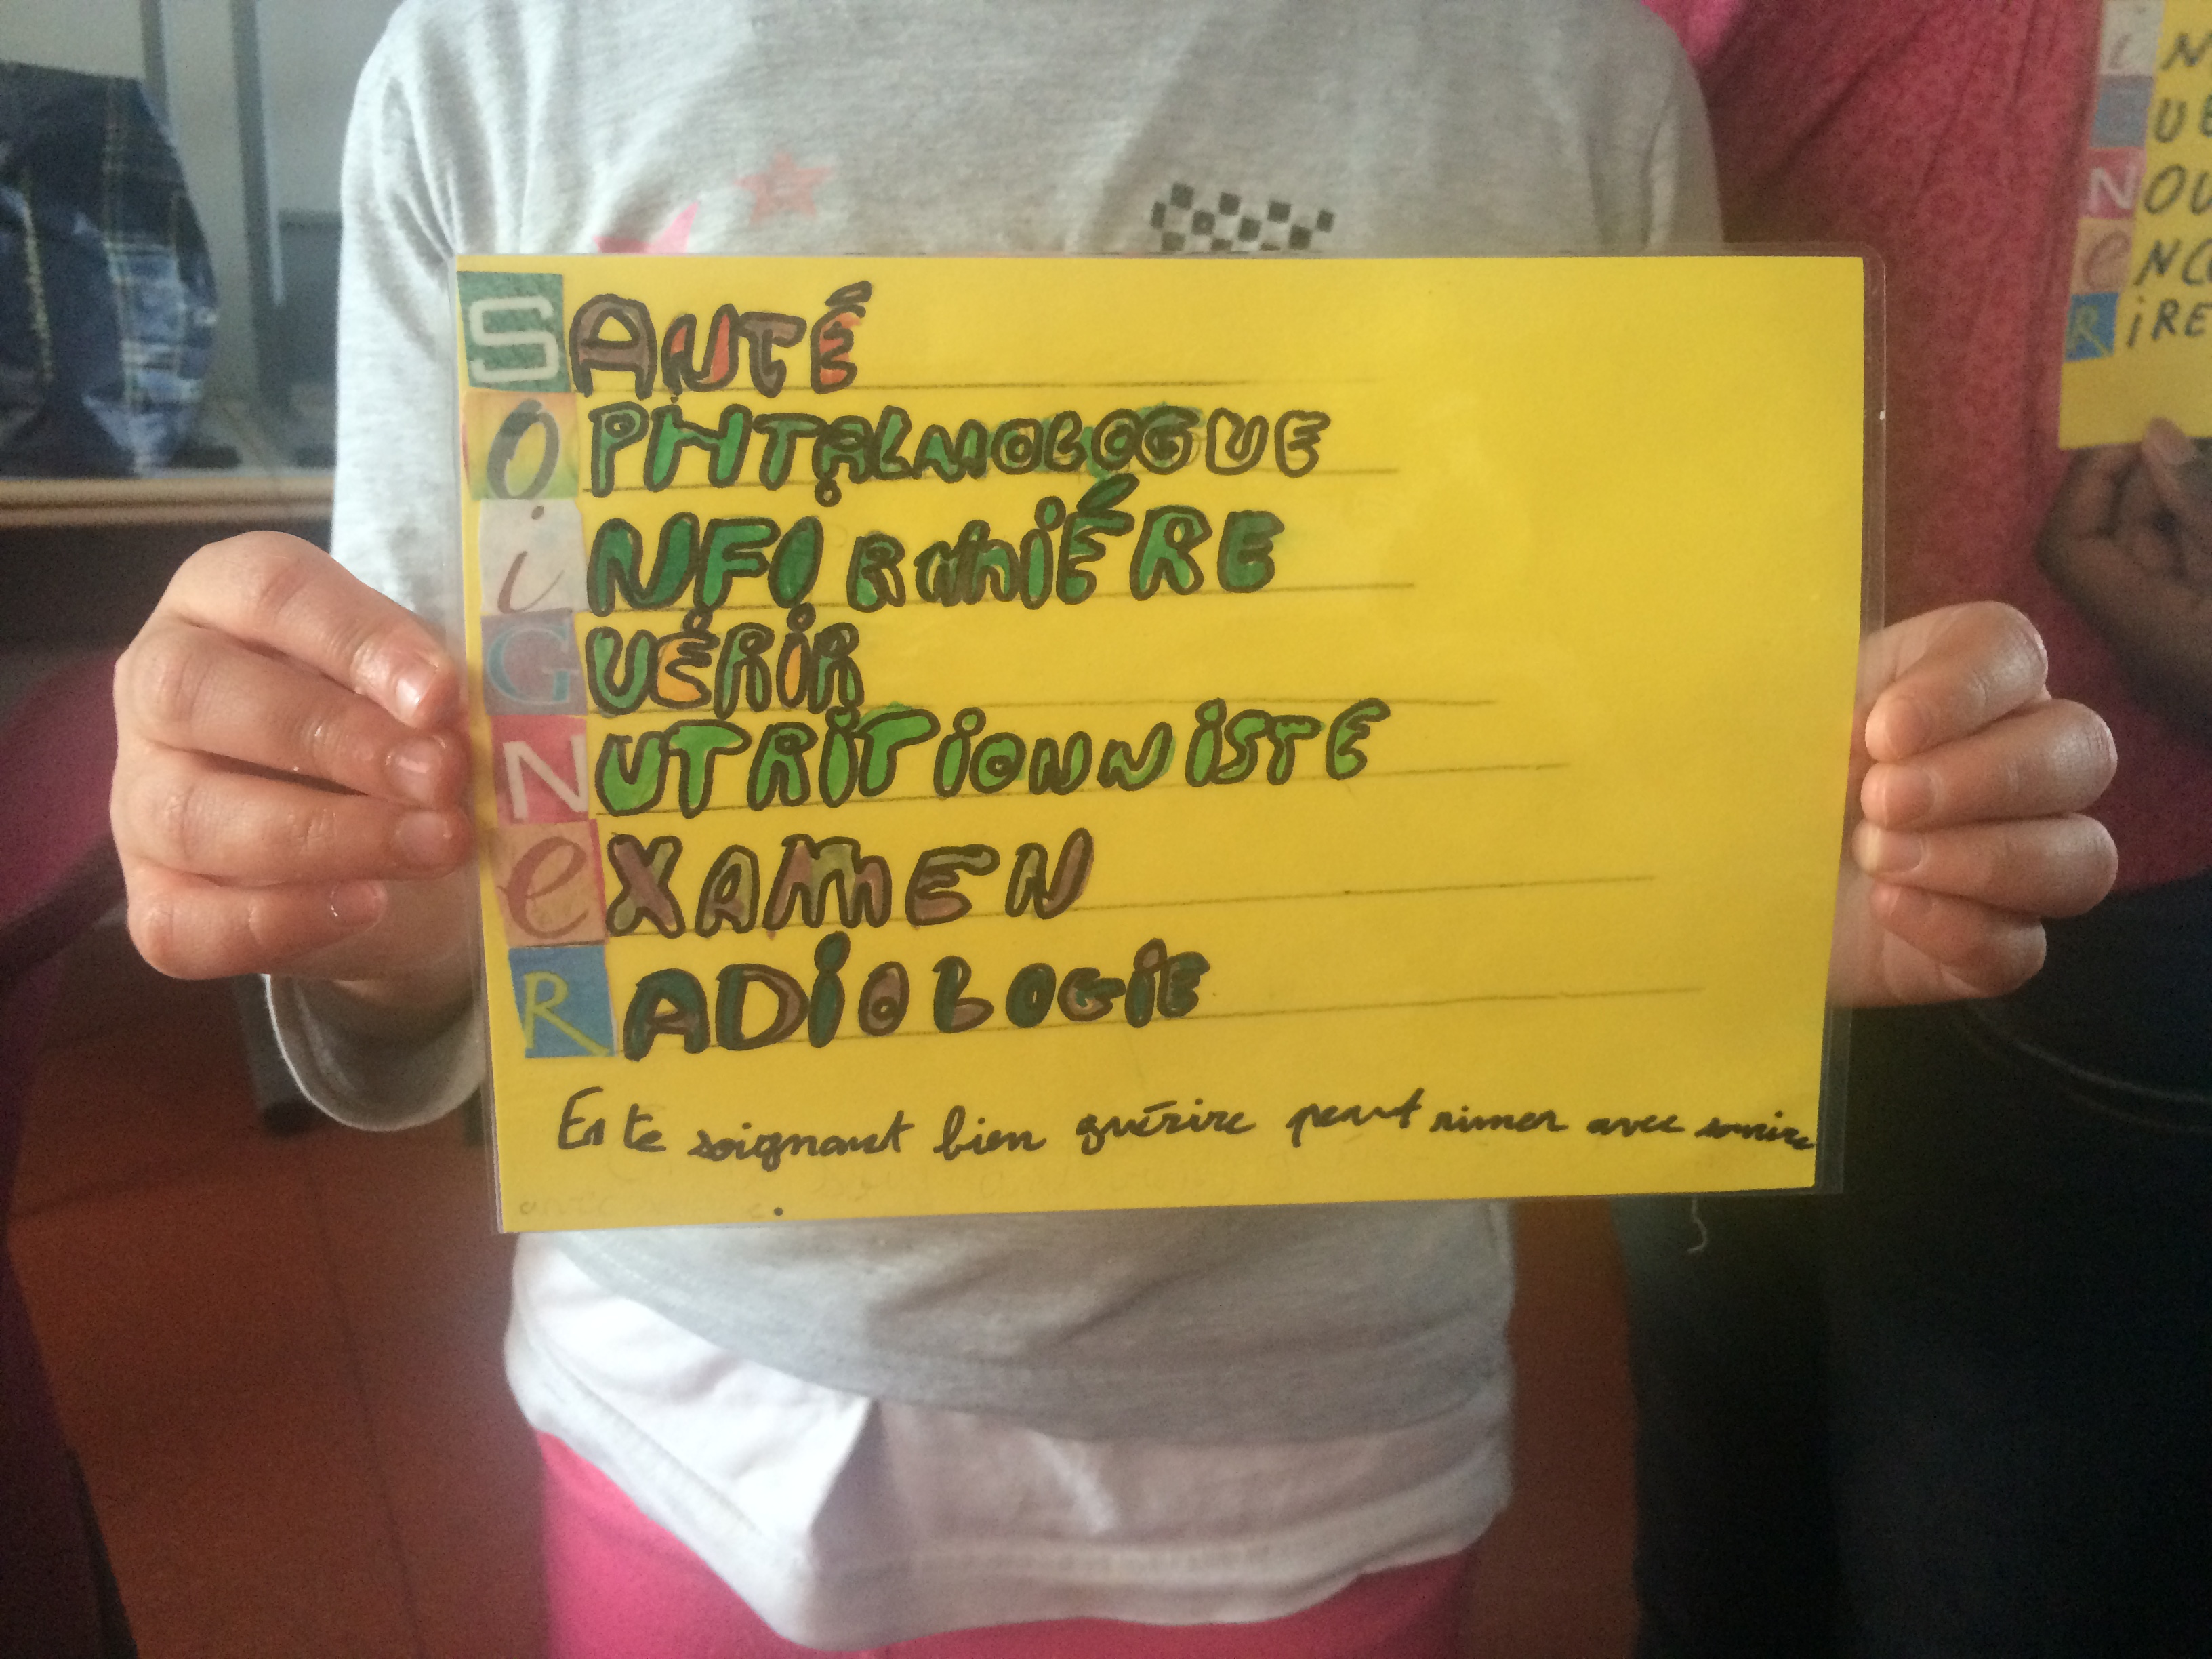 SANTÉ
OPHTALMOLOGUE
iNFIRMIÉRE
GUÉRIR
NUTRITIONNISTE
eXAMEN
RADIOLOGIE
En te soignant bien guérire peut rimer avec sourire
.
iN
GUE
NOU
eNCO
RiRE